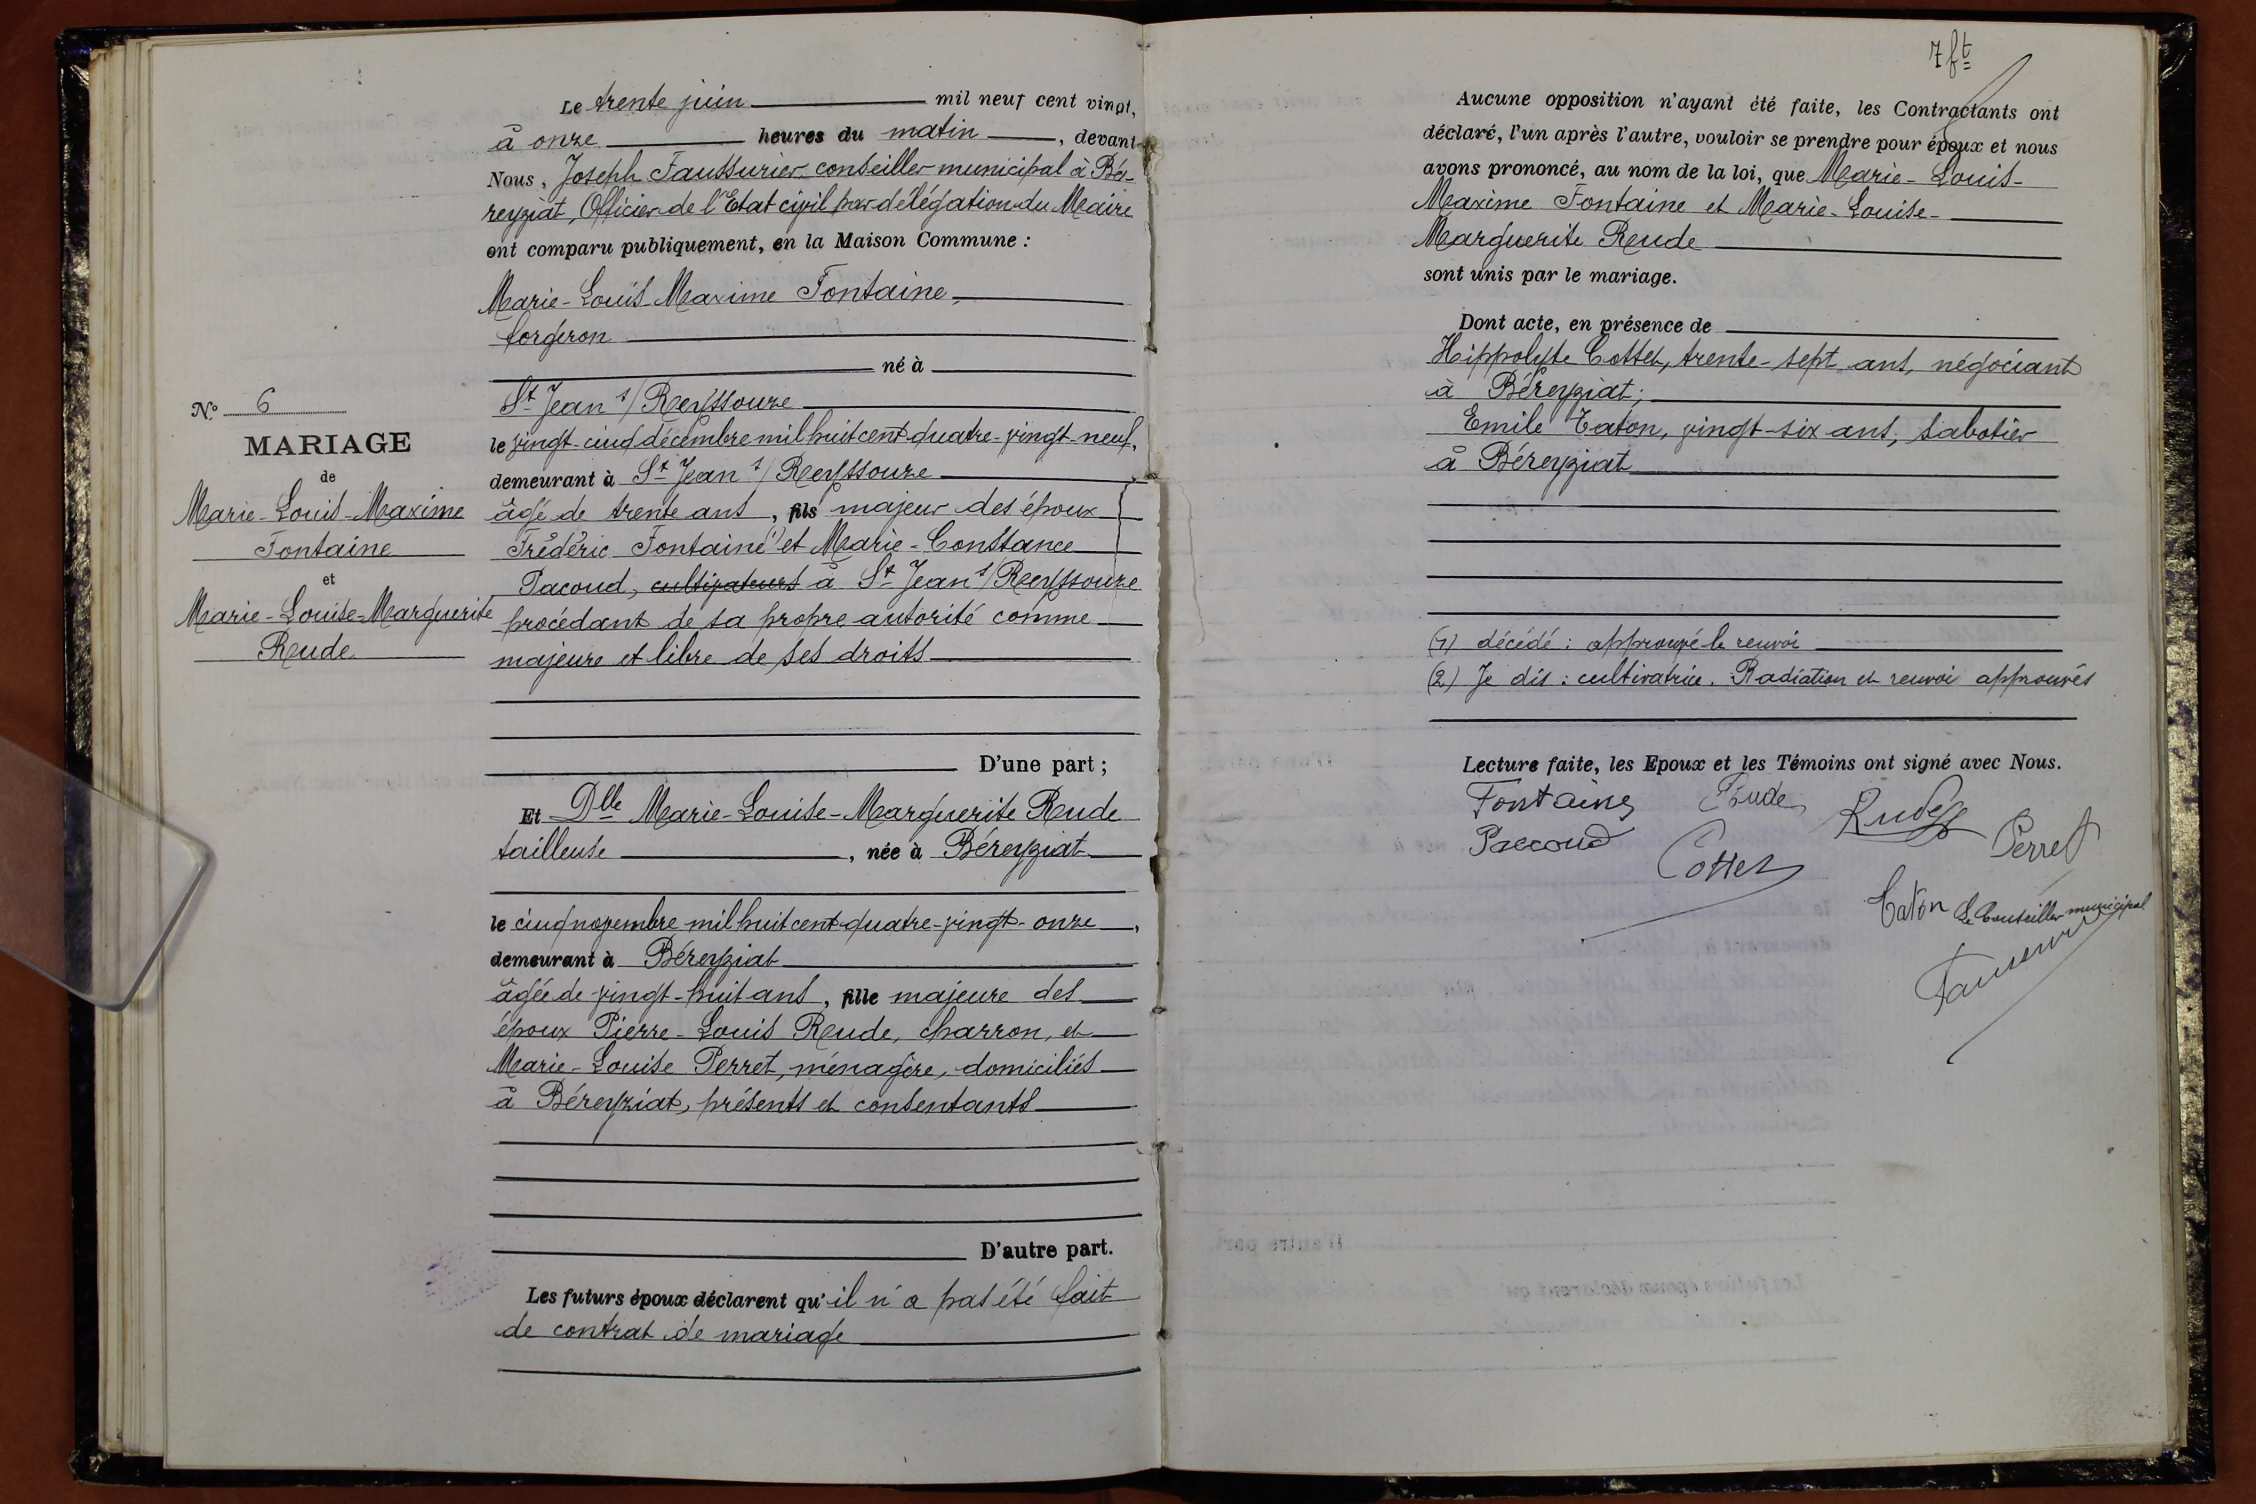 Le trente juin mil neuf cent vingt,
à onze heures du matin, devant
Nous, Joseph Faussurier conseiller municipal à Bé-
reyziat, Officier de l'Etat civil par délégation du Maire
ont comparu publiquement, en la Maison Commune :
Marie-Louis-Maxime Fontaine,
forgeron
né à
St Jean s/ Reyssouze
le vingt-cinq décembre mil huit cent quatre-vingt-neuf,
demeurant à St Jean s/ Reyssouze
âgé de trente ans, fils majeur des époux
Frédéric Fontaine (1) et Marie-Constance
Pacoud, cultivateurs à St Jean s/ Reyssouze
procédant de sa propre autorité comme
majeure et libre de ses droits
D'une part ;
Et Dlle Marie-Louise-Marguerite Rude
tailleuse, née à Béreyziat
le cinq novembre mil huit cent quatre-vingt-onze,
demeurant à Béreyziat
âgée de vingt-huit ans, fille majeure des
époux Pierre-Louis Rude, charron, et
Marie-Louise Perret, ménagère, domiciliés
à Béreyziat, présents et consentants
D'autre part.
Les futurs époux déclarent qu'il n'a pas été fait
de contrat de mariage
No 6
MARIAGE
de
Marie-Louis-Maxime
Fontaine
et
Marie-Louise-Marguerite
Rude
7 ft
Aucune opposition n'ayant été faite, les Contractants ont
déclaré, l'un après l'autre, vouloir se prendre pour époux et nous
avons prononcé, au nom de la loi, que Marie-Louis-
Maxime Fontaine et Marie-Louise-
Marguerite Rude
sont unis par le mariage.
Dont acte, en présence de
Hippolyte Cottet, trente-sept ans, négociant
à Béreyziat ;
Emile Caton, vingt-six ans, sabotier
à Béreyziat
(1) décédé : approuvé le renvoi
(2) Je dis : cultivatrice. Radiation et renvoi approuvés
Lecture faite, les Epoux et les Témoins ont signé avec Nous.
Fontaine Rude Rude
Paccoud Cottet Perret
Caton Le Conseiller municipal
Fausurier